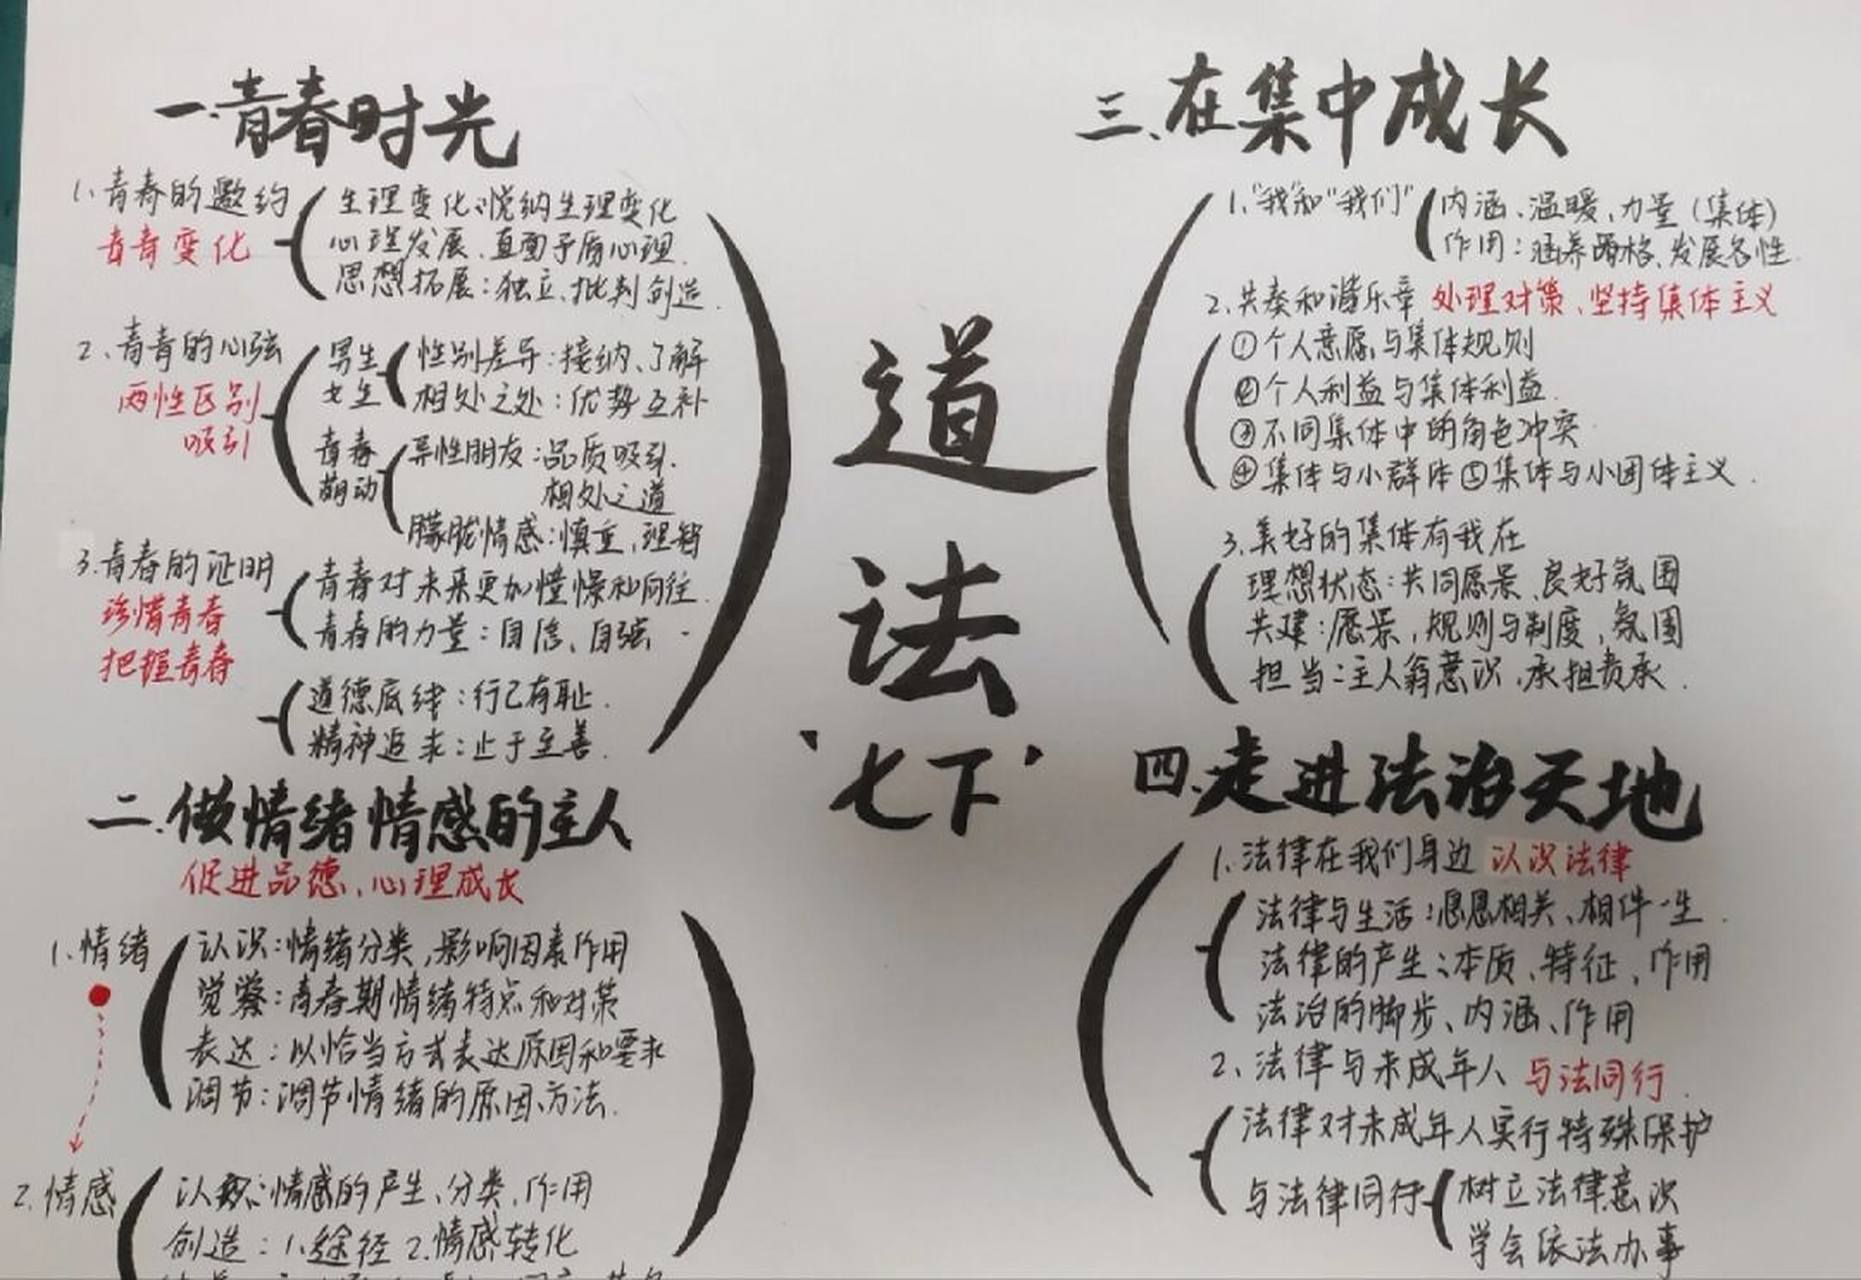 道
法
'七下'
一.青春时光
1.青春的邀约
青春变化
生理变化:悦纳生理变化
心理发展、直面矛盾心理.
思想拓展:独立、批判创造.
2、青春的心弦
两性区别
吸引
男生
女生
性别差异:接纳、了解
相处之处:优势互补
青春
萌动
异性朋友:品质吸引.
相处之道
朦胧情感:慎重,理智
3.青春的证明
珍惜青春
把握青春
青春对未来更加憧憬和向往.
青春的力量:自信、自强.
道德底线:行己有耻.
精神追求:止于至善.
二.做情绪情感的主人
促进品德,心理成长
1.情绪
认识:情绪分类,影响因素作用
觉察:青春期情绪特点和对策
表达:以恰当方式表达原因和要求
调节:调节情绪的原因、方法.
2.情感
认识:情感的产生、分类、作用
创造:1.途径 2.情感转化
三、在集中成长
1."我"和"我们"
内涵、温暖、力量(集体)
作用:涵养品格、发展个性.
2.共奏和谐乐章 处理对策、坚持集体主义
①个人意愿与集体规则
②个人利益与集体利益.
③不同集体中的角色冲突
④集体与小群体⑤集体与小团体主义.
3.美好的集体有我在
理想状态:共同愿景、良好氛围
共建:愿景,规则与制度,氛围
担当:主人翁意识,承担责承.
四.走进法治天地
1.法律在我们身边 认识法律
法律与生活:息息相关、相伴一生.
法律的产生:本质、特征、作用
法治的脚步、内涵、作用
2、法律与未成年人 与法同行.
法律对未成年人实行特殊保护
与法律同行
树立法律意识
学会依法办事